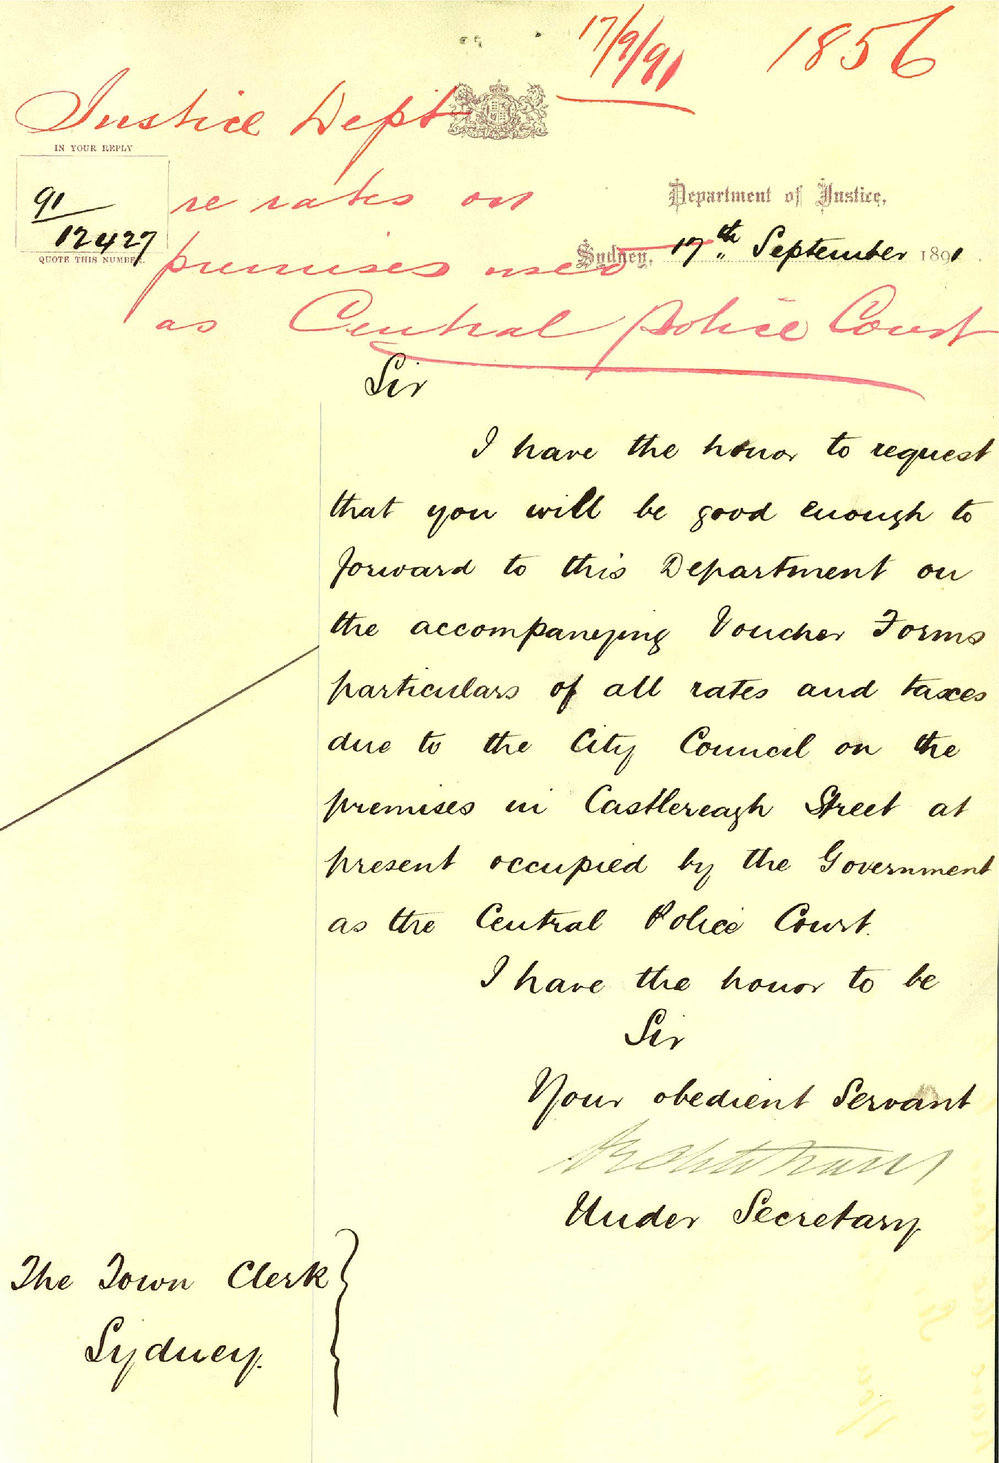 17/9/91 1856
Justice Dept
IN YOUR REPLY
91
12427
QUOTE THIS NUMBER.
re rates on
premises used
as Central Police Court
Department of Justice,
Sydney, 17th September 1891
Sir
I have the honor to request
that you will be good enough to
forward to this Department on
the accompanying Voucher Forms
particulars of all rates and taxes
due to the City Council on the
premises in Castlereagh Street at
present occupied by the Government
as the Central Police Court.
I have the honor to be
Sir
Your obedient Servant
Under Secretary
The Town Clerk
Sydney.